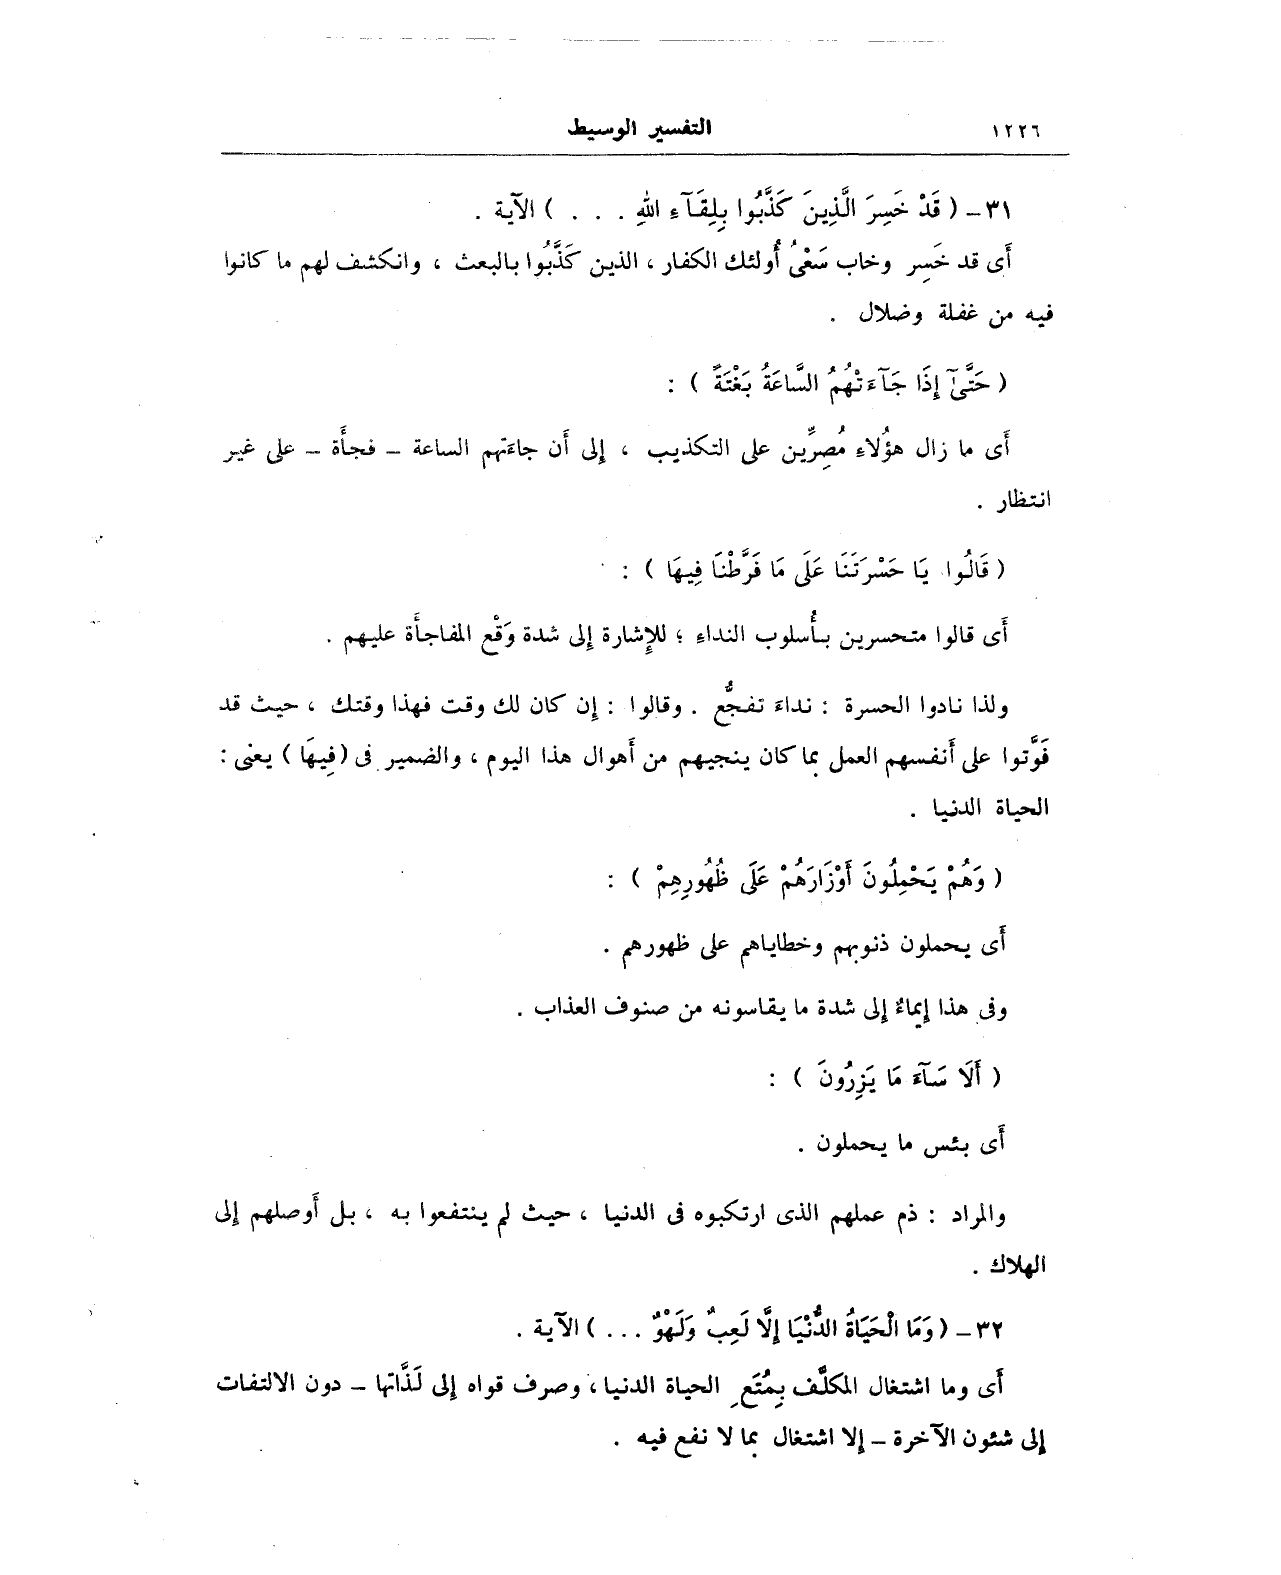 ١٢٢٦ التفسير الوسيط
٣١ – ( قَدْ خَسِرَ الَّذِينَ كَذَّبُوا بِلِقَآءِ اللهِ . . . ) الآية .
أَى قد خَسِر وخاب سَعْىُ أُولئك الكفار ، الذين كَذَّبُوا بالبعث ، وانكشف لهم ما كانوا
فيه من غفلة وضلال .
( حَتَّىٰٓ إِذَا جَآءَتْهُمُ السَّاعَةُ بَغْتَةً ) :
أَى ما زال هؤُلاءِ مُصِرِّين على التكذيب ، إِلى أَن جاءَتهم الساعة – فجأَة – على غير
انتظار .
( قَالُوا يَا حَسْرَتَنَا عَلَى مَا فَرَّطْنَا فِيهَا ) :
أَى قالوا متحسرين بأُسلوب النداءِ ؛ للإِشارة إِلى شدة وَقْع المفاجأَة عليهم .
ولذا نادوا الحسرة : نداءَ تفجُّع . وقالوا : إِن كان لك وقت فهذا وقتك ، حيث قد
فَوَّتوا على أَنفسهم العمل بما كان ينجيهم من أَهوال هذا اليوم ، والضمير فى ( فِيهَا ) يعنى :
الحياة الدنيا .
( وَهُمْ يَحْمِلُونَ أَوْزَارَهُمْ عَلَى ظُهُورِهِمْ ) :
أَى يحملون ذنوبهم وخطاياهم على ظهورهم .
وفى هذا إِيماءٌ إِلى شدة ما يقاسونه من صنوف العذاب .
( أَلَا سَآءَ مَا يَزِرُونَ ) :
أَى بئس ما يحملون .
والمراد : ذم عملهم الذى ارتكبوه فى الدنيا ، حيث لم ينتفعوا به ، بل أَوصلهم إِلى
الهلاك .
٣٢ – ( وَمَا الْحَيَاةُ الدُّنْيَا إِلَّا لَعِبٌ وَلَهْوٌ . . . ) الآية .
أَى وما اشتغال المكلَّف بِمُتَعِ الحياة الدنيا ، وصرف قواه إِلى لَذَّاتها – دون الالتفات
إِلى شئون الآخرة – إِلا اشتغال بما لا نفع فيه .